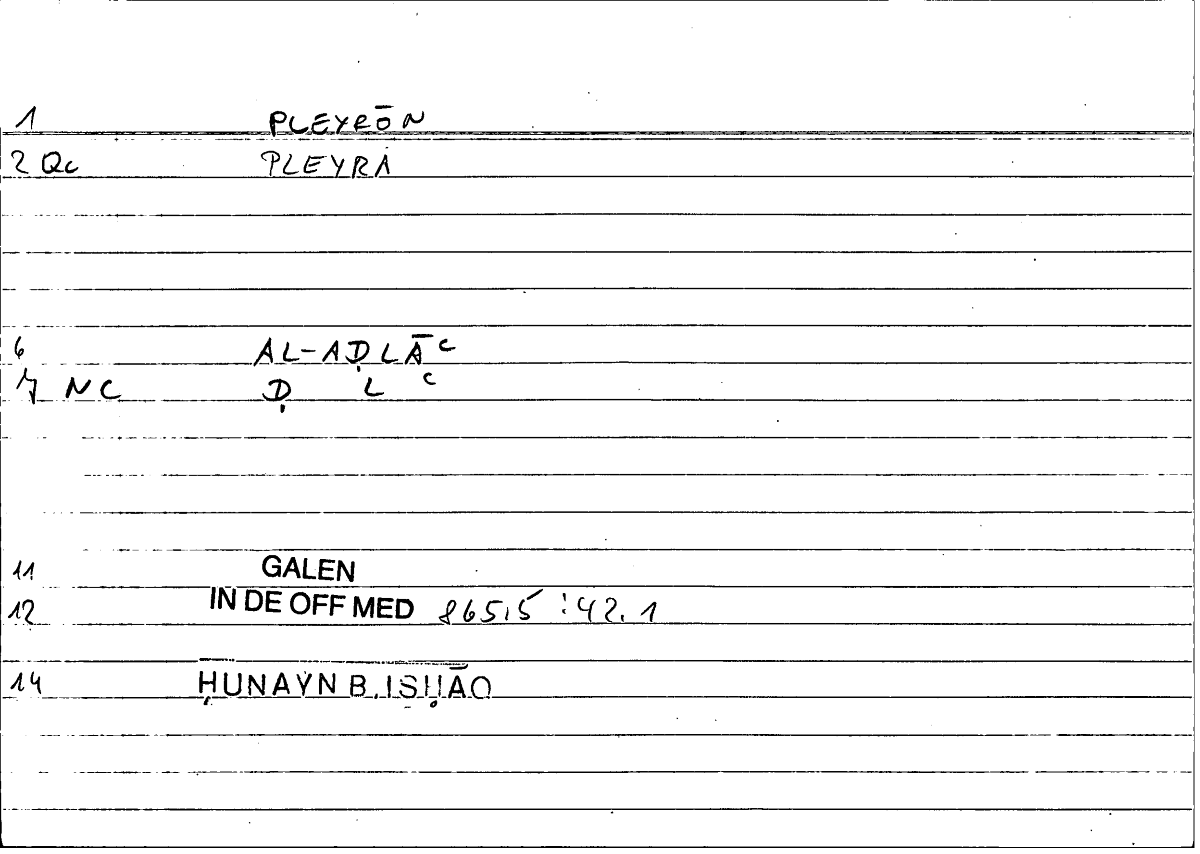 1 PLEYRŌN
2 Qc PLEYRA
6 AL-AḌLĀC
7 NC Ḍ L C
11 GALEN
12 IN DE OFF MED 865,5 : 42. 1
14 ḤUNAYN B. ISḤĀQ